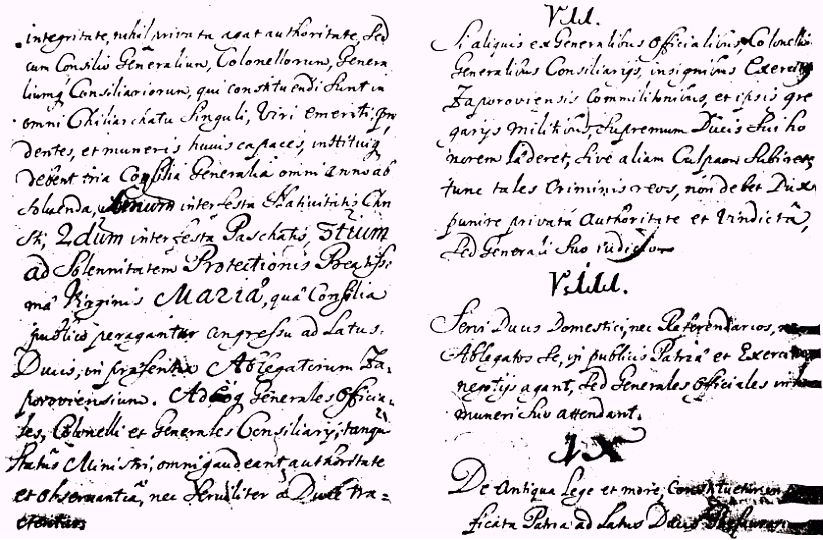 integritate, nihil privata agat authoritate, sed
cum Consilio Generalium, Colonellorum, Genera
liumq; Consiliariorum, qui constituendi sunt in
omni Chiliarchatu Singuli, Viri emeriti, pru
dentes, et muneris huius capaces, instituiq;
debent tria Consilia Generalia omni anno ab
soluenda, unum inter festa Nativitatis Chri
sti, 2dum inter festa Paschatis, 3tium
ad Solennitatem Protectionis Beatissi
mæ Virginis MARIÆ, quæ Consilia
publice peragantur congressu ad Latus
Ducis, in præsentia Ablegatorum Za-
poroviensium. Adeoq; Generales Officia-
les, Colonelli et Generales Consiliarij, tanquā
Status Ministri, omni gaudeant authoritate
et observantiâ, nec serviliter à Duce tra-
ctentur.
VII.
Si aliquis ex Generalibus Officialibus, Colonellis
Generalibus Consiliarijs, insignibus Exercitus
Zaporoviensis Commilitonibus, et ipsis gre
garijs militibus, Supremum Ducis sui ho
norem læderet, sive aliam Culpam subiret,
tunc tales Criminis reos, non debet Dux
punire privatâ Authoritate et Vindictâ,
sed Generali suo iudicio
VIII.
Servi Ducis Domestici, nec Referendarios,
Ablegatos se, in publicis Patriæ et Exercitus
negotijs agant, sed Generales Officiales
muneri suo attendant.
IX
De Antiqua Lege et more,
ficata Patria ad Latus Ducis